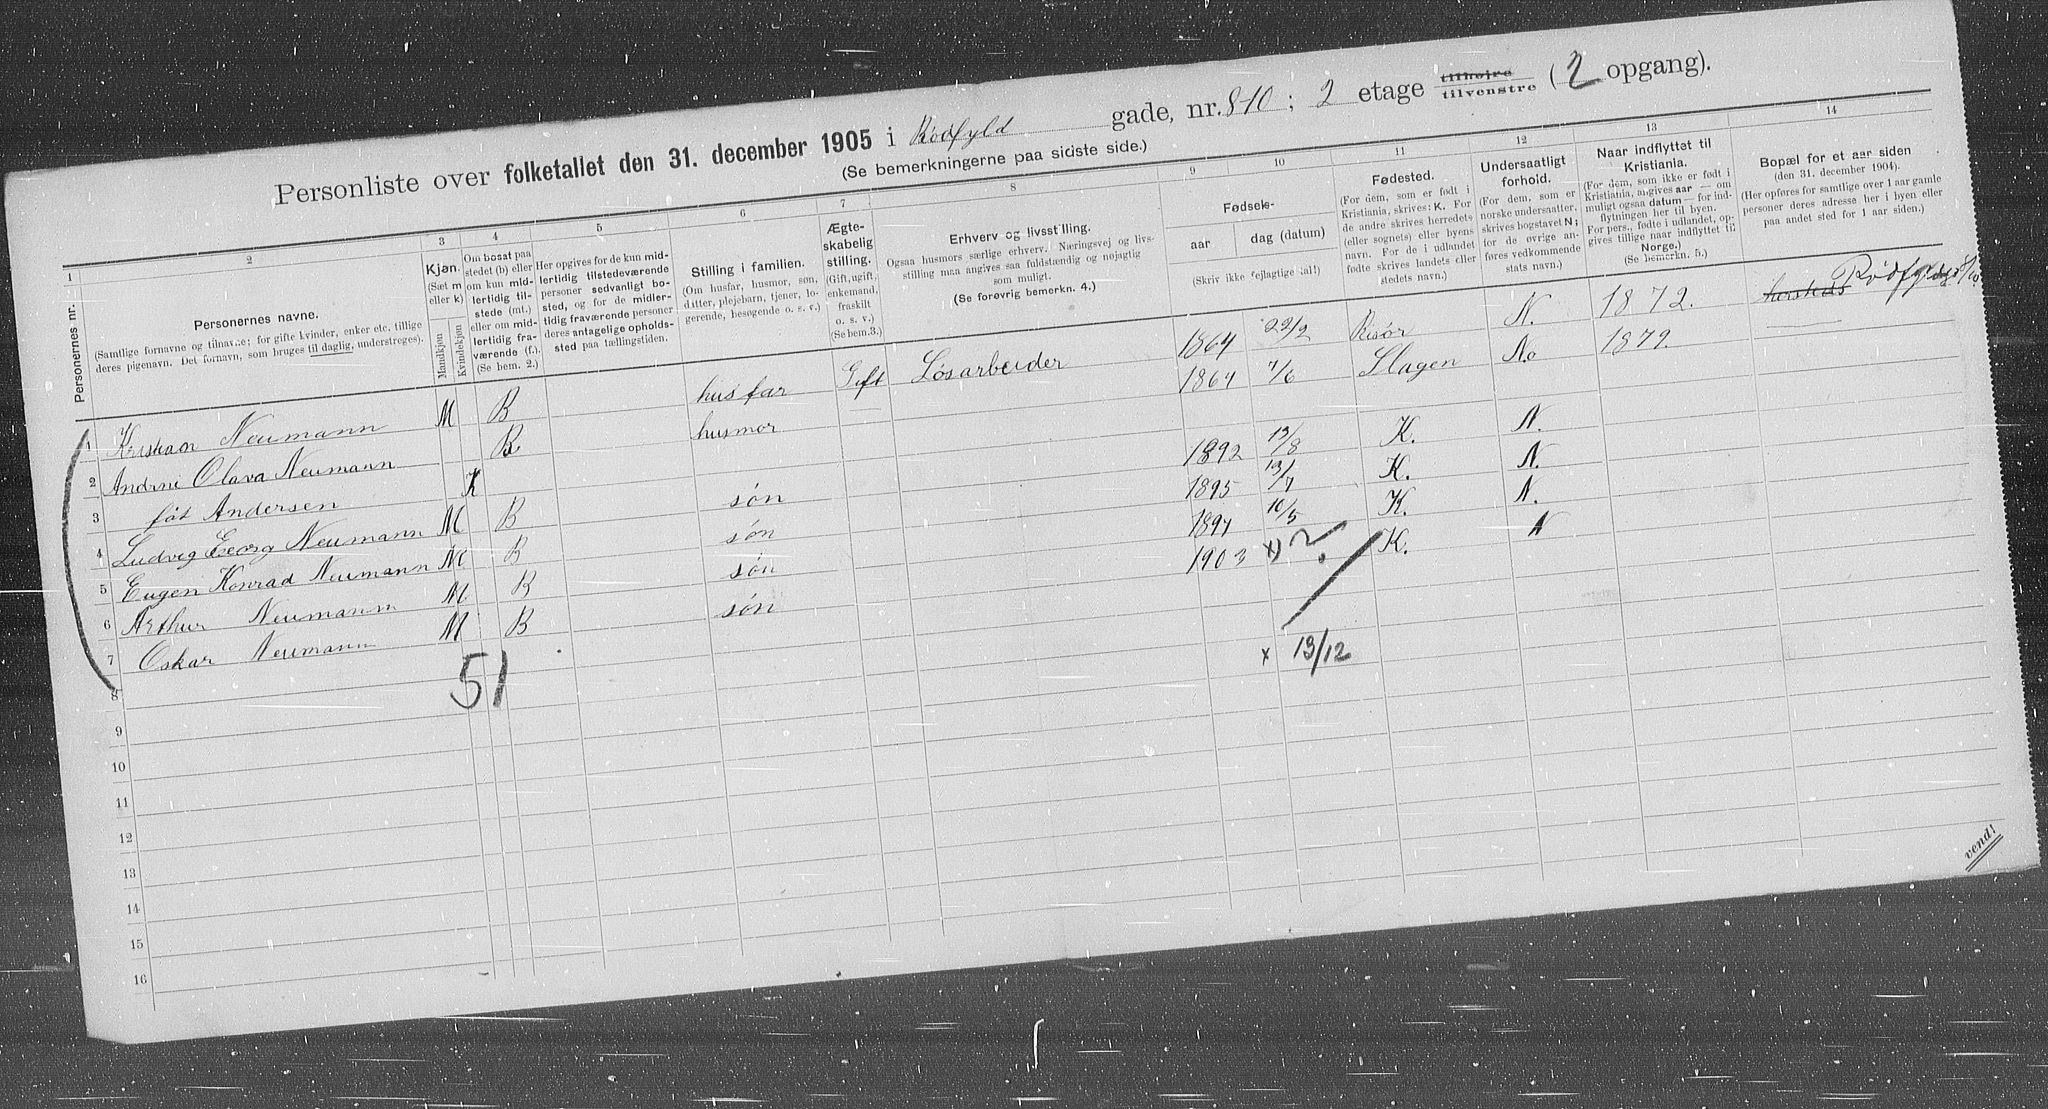 Personliste over folketallet den 31. december 1905 i Rødfyld gade, nr. 8-10 ; 2 etage tilhøire tilvenstre ( 2 opgang).
(Se bemerkningerne paa sidste side.)
1 2 3 4 5 6 7 8 9 10 11 12 13 14
Personernes nr.
Personernes navne.
(Samtlige fornavne og tilnavne; for gifte kvinder, enker etc. tillige
deres pigenavn. Det fornavn, som bruges til daglig, understreges).
Kjøn.
(Sæt m
eller k)
Mandkjøn
Kvindekjøn
Om bosat paa
stedet (b) eller
om kun midlertidig
tilstede (mt.)
eller om midlertidig
fraværende (f.).
(Se bem. 2.)
Her opgives for de kun midlertidig
tilstedeværende
personer sedvanligt bosted,
og for de midlertidig
fraværende personer
deres antagelige opholdssted
paa tællingstiden.
Stilling i familien.
(Om husfar, husmor, søn,
datter, plejebarn, tjener, logerende,
besøgende o. s. v.)
Ægteskabelig
stilling.
(Gift, ugift,
enkemand,
fraskilt
o. s. v.)
(Se bem. 3.)
Erhverv og livsstilling.
Ogsaa husmors særlige erhverv. Næringsvej og livsstilling
maa angives saa fuldstændig og nøjagtig
som muligt.
(Se forøvrig bemerkn. 4.)
Fødsels-
aar dag (datum)
(Skriv ikke fejlagtige tal!)
Fødested.
(For dem, som er født i
Kristiania, skrives: K. For
de andre skrives herredets
(eller sognets) eller byens
navn. For de i udlandet
fødte skrives landets eller
stedets navn.)
Undersaatligt
forhold.
(For dem, som er
norske undersaatter,
skrives bogstavet N;
for de øvrige anføres
vedkommende
stats navn.)
Naar indflyttet til
Kristiania.
(For dem, som ikke er født i
Kristiania, angives aar — om
muligt ogsaa datum — for indflytningen
her til byen.
For pers., fødte i udlandet, opgives
tillige naar indflyttet til
Norge.)
(Se bemerkn. 5.)
Bopæl for et aar siden
(den 31. december 1904).
(Her opføres for samtlige over 1 aar gamle
personer deres adresse her i byen eller
paa andet sted for 1 aar siden.)
1 Kristian Neumann M B husfar Gift Løsarbeider 1864 22/2 Risør N. 1872. hersteds Rødfyld 8/10
2 Andrine Olava Neumann B husmor — 1864 7/6 Slagen No 1879. —
3 føt Andersen K
4 Ludvig Georg Neumann M B søn 1892 13/8 K. N.
5 Eugen Konrad Neumann M B søn 1895 13/7 K. N.
6 Arthur Neumann M B søn 1897 10/5 K. N.
7 Oskar Neumann M B søn 1903 x) ? K. N
8 51 x 13/12
9
10
11
12
13
14
15
16
vend!